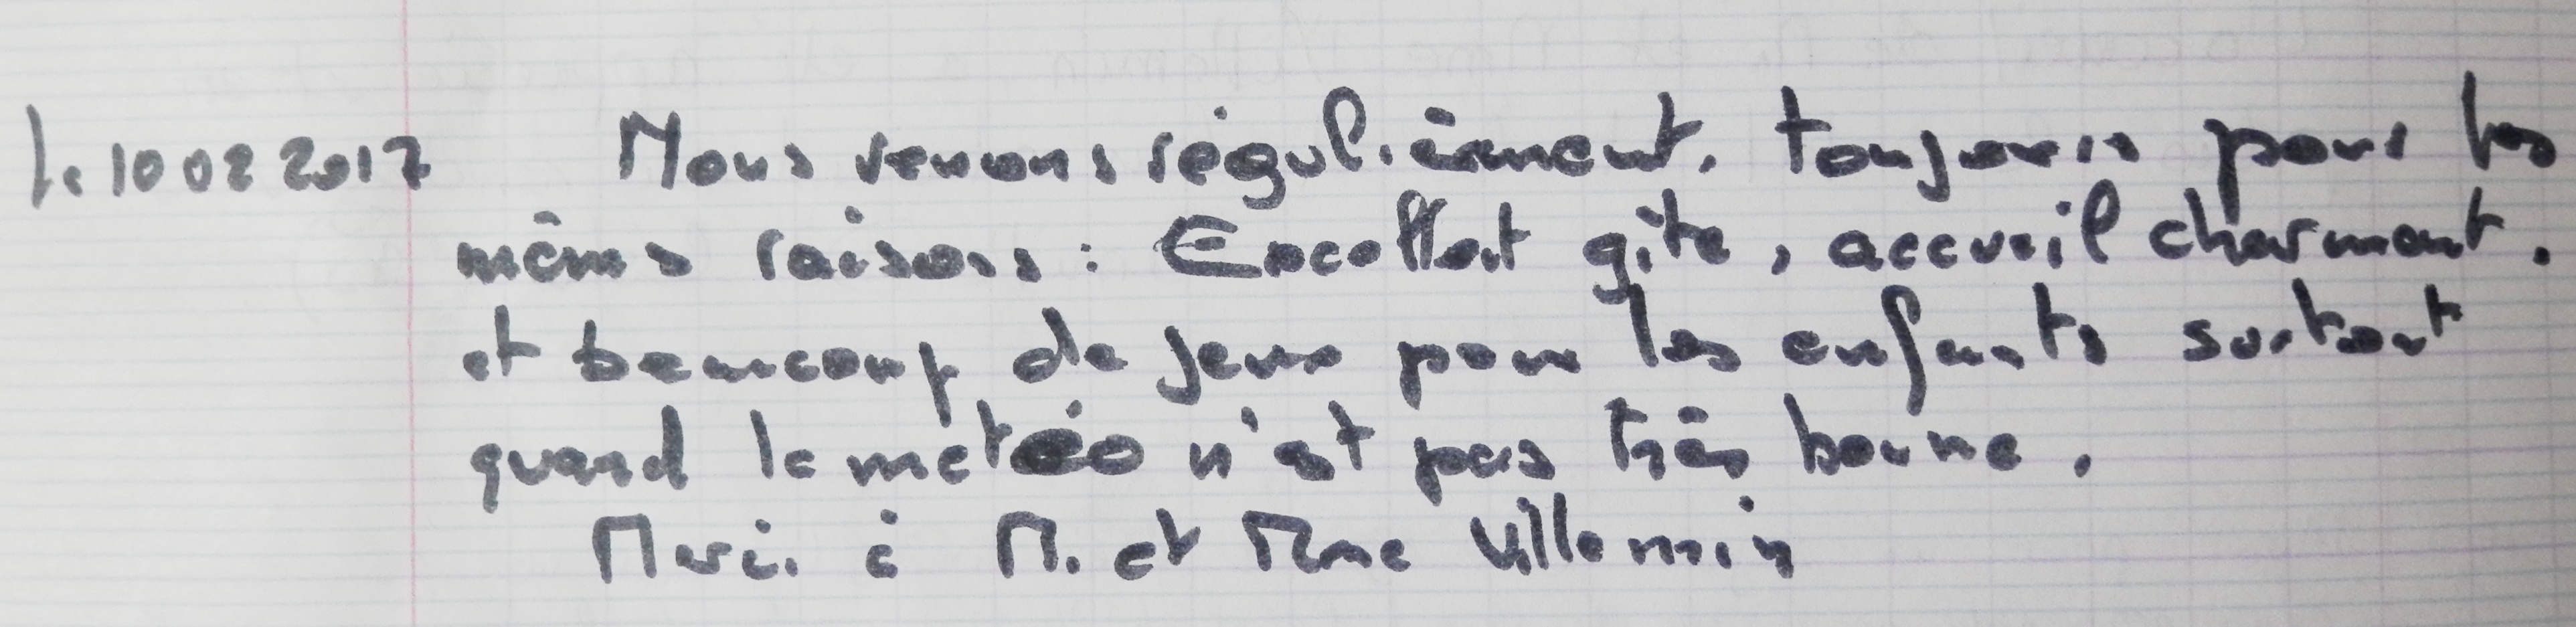 Le 10 02 2017 Nous venons régulièrement. toujours pour les
mêmes raisons : Excellent gîte, accueil charmant.
et beaucoup de jeux pour les enfants surtout
quand la météo n'est pas très bonne.
Merci à M. et Mme Villemin